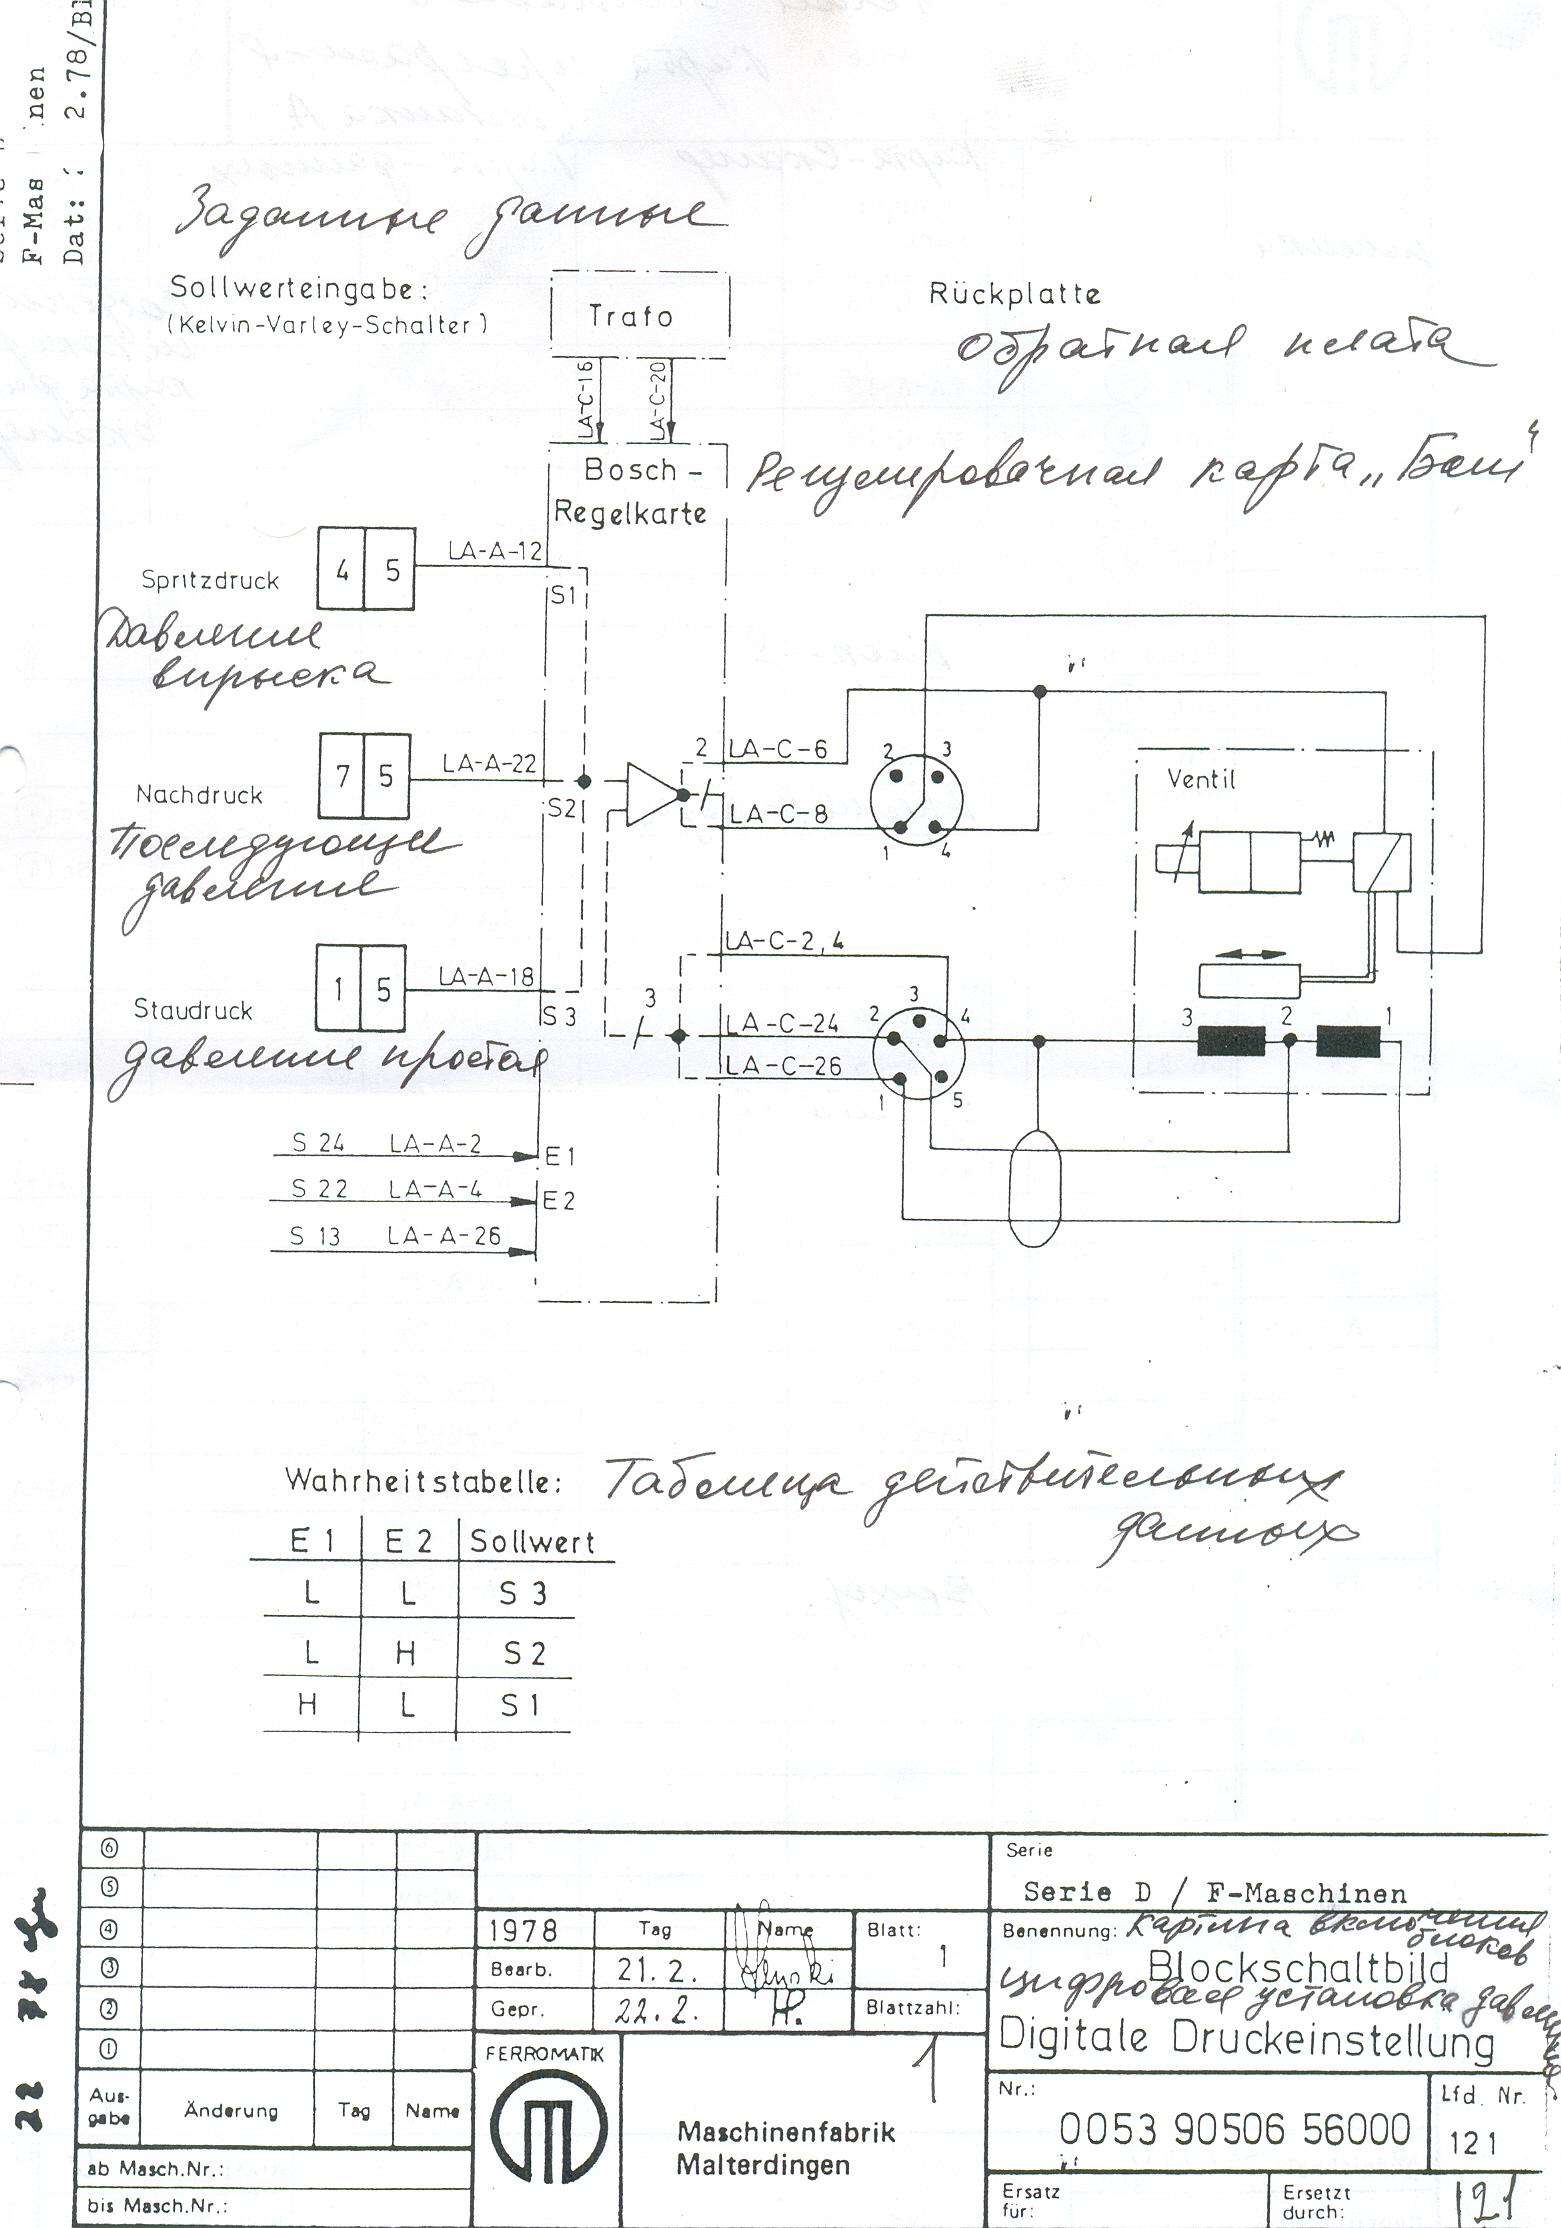 F-Mas nen
Dat: 2.78/Bl
Заданные данные
Sollwerteingabe:
(Kelvin-Varley-Schalter)
Trafo
Rückplatte
Обратная плата
LA-C-16
LA-C-20
Bosch-
Regelkarte
Регулировочная карта „Бош“
Spritzdruck
4 5
LA-A-12
S1
Давление
впрыска
Nachdruck
7 5
LA-A-22
S2
Последующее
давление
2
LA-C-6
LA-C-8
2 3
1 4
Ventil
Staudruck
1 5
LA-A-18
S3
давление простоя
3
LA-C-2,4
LA-C-24
LA-C-26
2 3 4
1 5
3 2 1
S 24 LA-A-2 E1
S 22 LA-A-4 E2
S 13 LA-A-26
Wahrheitstabelle:
Таблица действительных
данных
E 1 E 2 Sollwert
L L S 3
L H S 2
H L S 1
6
5
4
3
2
1
Aus-
gabe
Änderung Tag Name
ab Masch.Nr.:
bis Masch.Nr.:
1978 Tag Name
Bearb. 21.2.
Gepr. 22.2. H.
Blatt:
1
Blattzahl:
1
FERROMATIK
Maschinenfabrik
Malterdingen
Serie
Serie D / F-Maschinen
Benennung: картина включения
блоков
Blockschaltbild
цифровая установка давления
Digitale Druckeinstellung
Nr.:
0053 90506 56000
Lfd. Nr.
121
Ersatz
für:
Ersetzt
durch:
121